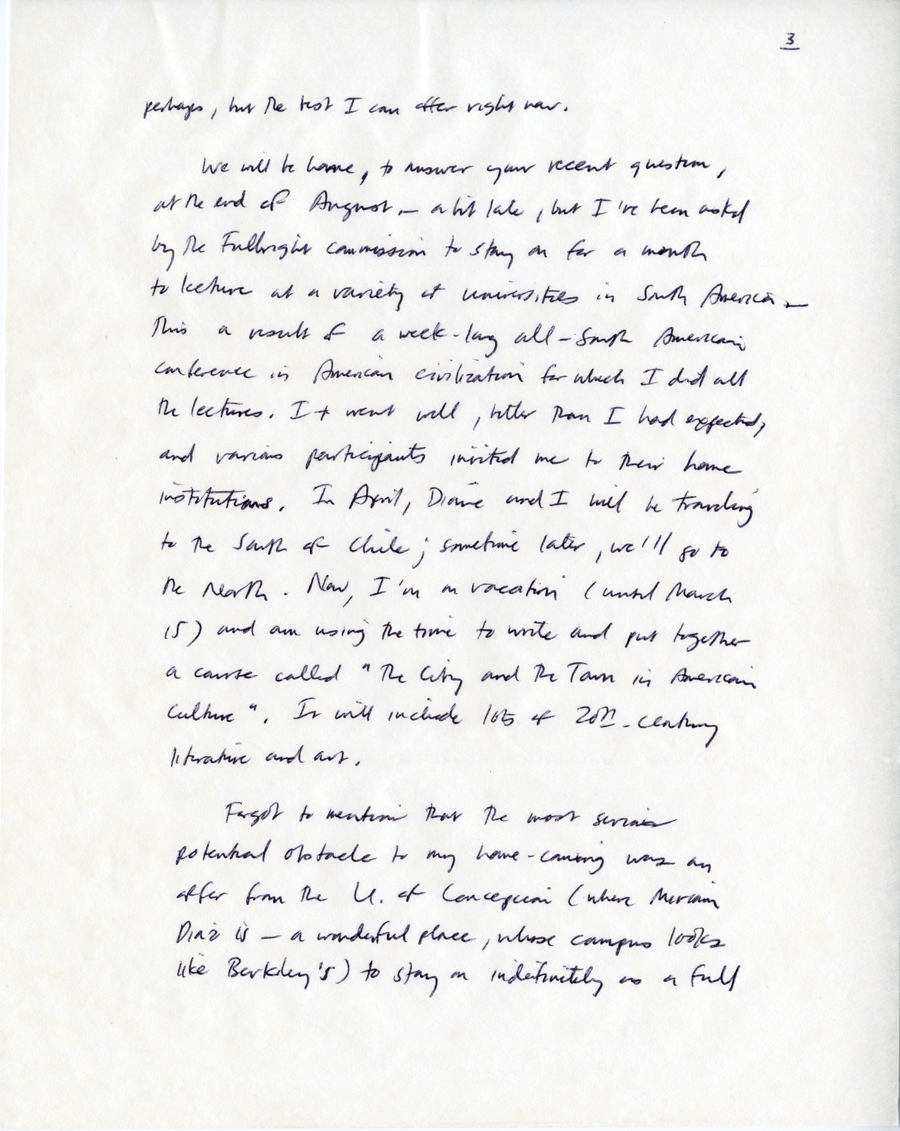 3
perhaps, but the best I can offer right now.
We will be home, to answer your recent question,
at the end of August — a bit late, but I've been asked
by the Fulbright commission to stay on for a month
to lecture at a variety of universities in South America —
this a result of a week-long all-South American
conference in American civilization for which I did all
the lectures. It went well, better than I had expected,
and various participants invited me to their home
institutions. In April, Diane and I will be traveling
to the South of Chile; sometime later, we'll go to
the North. Now, I'm on vacation (until March
15) and am using the time to write and put together
a course called "The City and the Town in American
Culture". It will include lots of 20th-century
literature and art.
Forgot to mention that the most serious
potential obstacle to my home-coming was an
offer from the U. of Concepcion (where Miriam
Diaz is — a wonderful place, whose campus looks
like Berkeley's) to stay on indefinitely as a full